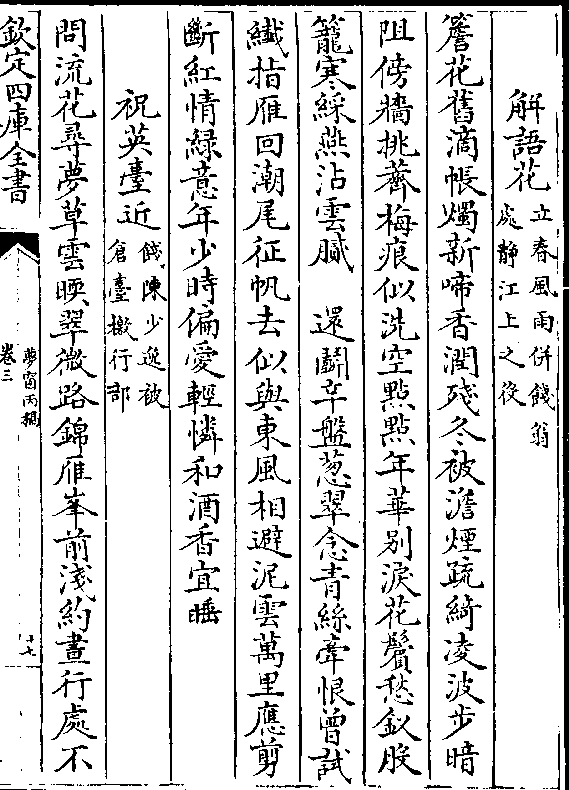 解語花立春風雨併餞翁
處靜江上之役
簷花舊滴帳燭新啼香潤殘冬被澹煙疏綺凌波步暗
阻傍牆挑薺梅痕似洗空點點年華別淚花鬢愁釵股
籠寒綵燕沾雲膩　還鬭辛盤葱翠念青絲牽恨曾試
纖指雁回潮尾征帆去似與東風相避泥雲萬里應剪
斷紅情緑意年少時偏愛輕憐和酒香宜睡
祝英臺近餞陳少逸被
倉臺檄行部
問流花尋夢草雲暝翠微路錦雁峯前淺約晝行處不
欽定四庫全書
夢窗丙稿
卷三
十七